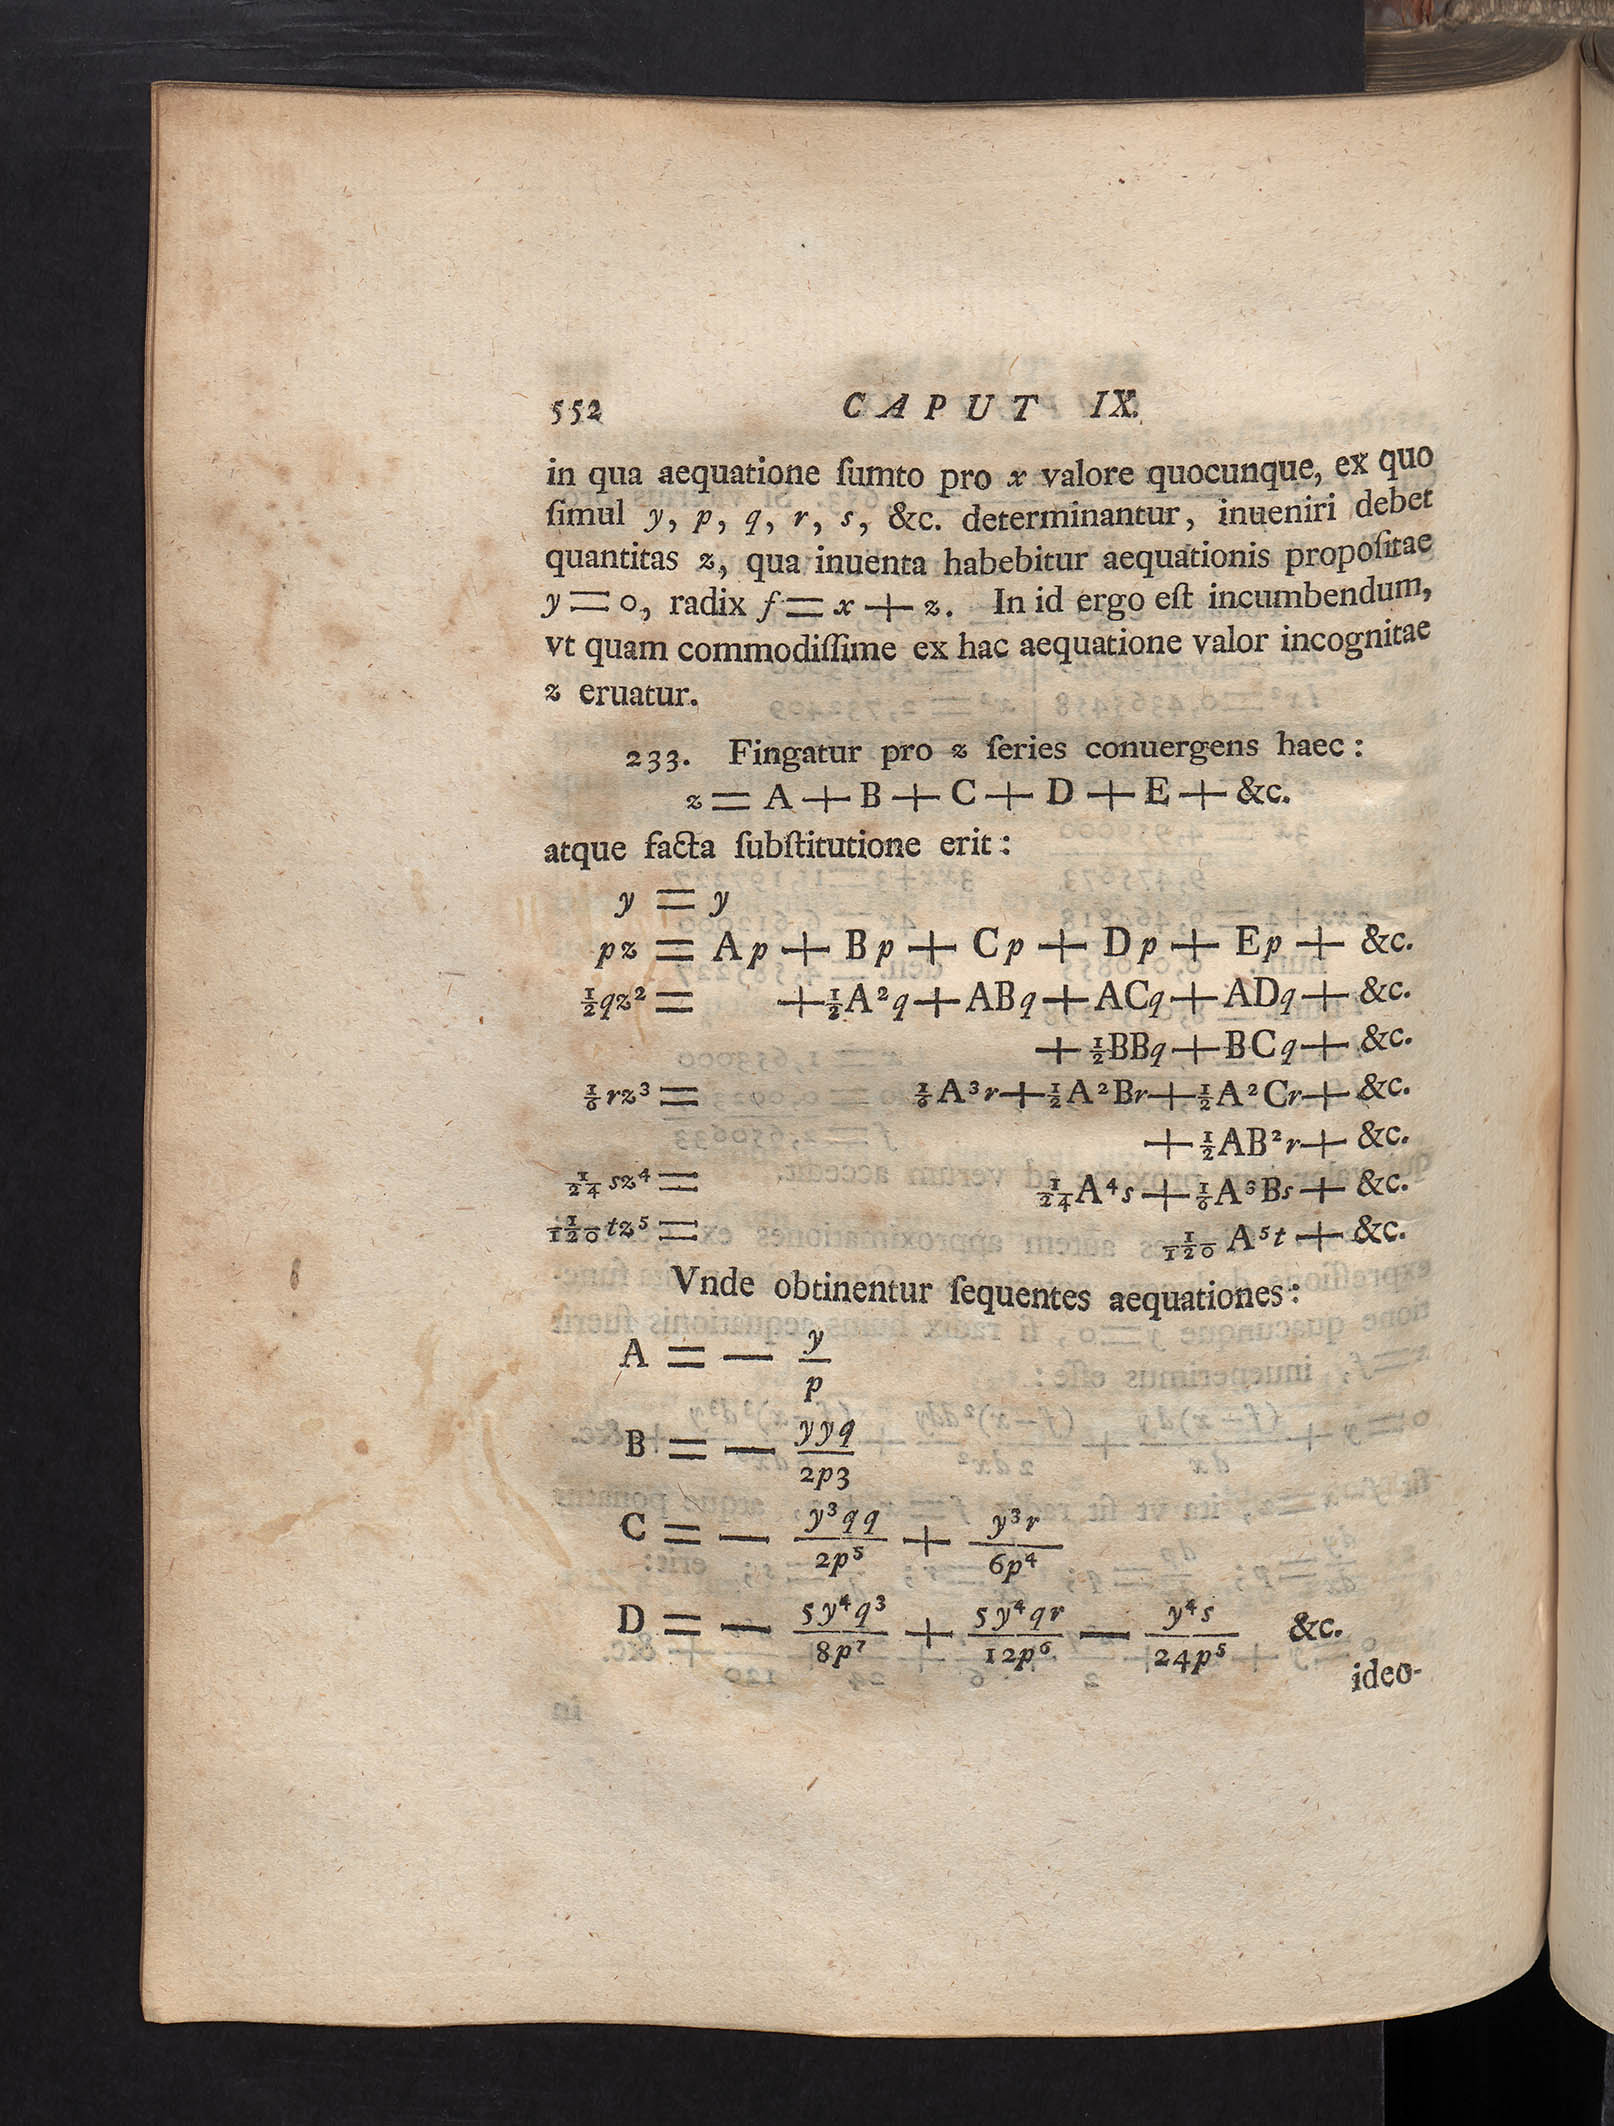 552 CAPUT IX.
in qua aequatione ſumto pro x valore quocunque, ex quo
ſimul y, p, q, r, s, &c. determinantur, inueniri debet
quantitas z, qua inuenta habebitur aequationis propoſitae
y = 0, radix f = x + z. In id ergo eſt incumbendum,
vt quam commodiſſime ex hac aequatione valor incognitae
z eruatur.
233. Fingatur pro z ſeries conuergens haec:
z = A + B + C + D + E + &c.
atque facta ſubſtitutione erit:
y = y
pz = Ap + Bp + Cp + Dp + Ep + &c.
½qz² = + ½A²q + ABq + ACq + ADq + &c.
+ ½BBq + BCq + &c.
⅙rz³ = ⅙A³r + ½A²Br + ½A²Cr + &c.
+ ½AB²r + &c.
1/24 sz⁴ = 1/24 A⁴s + ⅙A³Bs + &c.
1/120 tz⁵ = 1/120 A⁵t + &c.
Vnde obtinentur ſequentes aequationes:
A = — y/p
B = — yyq/2p3
C = — y³qq/2p⁵ + y³r/6p⁴
D = — 5y⁴q³/8p⁷ + 5y⁴qr/12p⁶ — y⁴s/24p⁵ &c.
ideo-